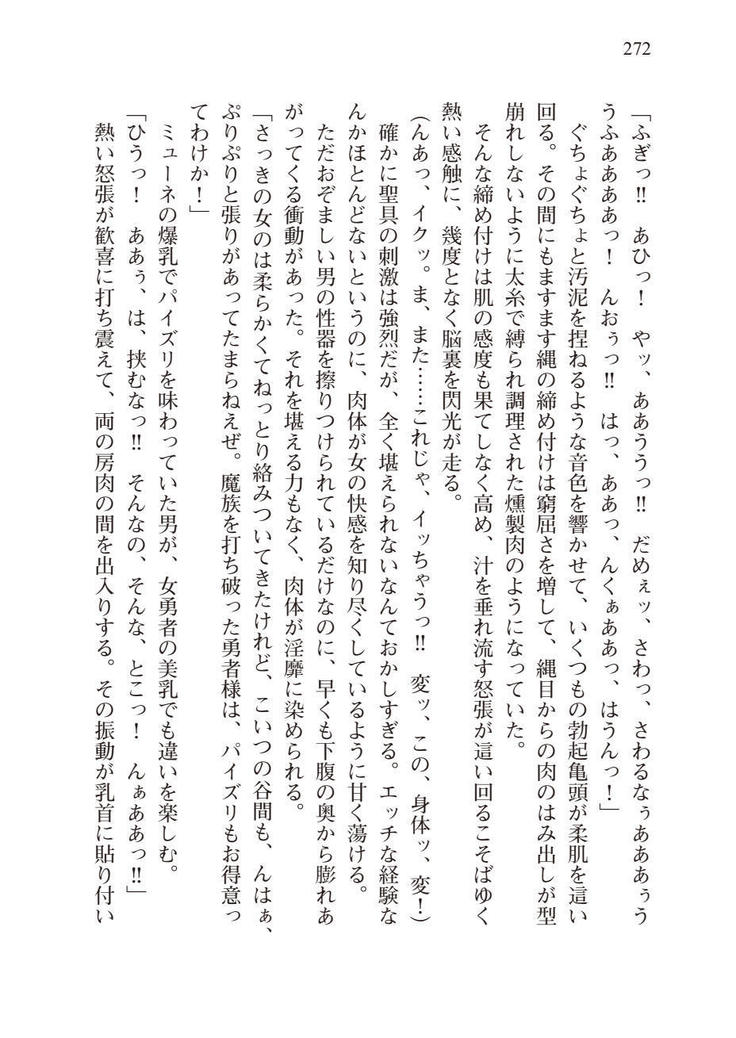 272
「ふぎっ‼　あひっ！　やッ、ああううっ‼　だめぇッ、さわっ、さわるなぅあああぅう
うふああああっ！　んおぅっ‼　はっ、ああっ、んくぁああっ、はうんっ！」
　ぐちょぐちょと汚泥を捏ねるような音色を響かせて、いくつもの勃起亀頭が柔肌を這い
回る。その間にもますます縄の締め付けは窮屈さを増して、縄目からの肉のはみ出しが型
崩れしないように太糸で縛られ調理された燻製肉のようになっていた。
　そんな締め付けは肌の感度も果てしなく高め、汁を垂れ流す怒張が這い回るこそばゆく
熱い感触に、幾度となく脳裏を閃光が走る。
（んあっ、イクッ。ま、また……これじゃ、イッちゃうっ‼　変ッ、この、身体ッ、変！）
　確かに聖具の刺激は強烈だが、全く堪えられないなんておかしすぎる。エッチな経験な
んかほとんどないというのに、肉体が女の快感を知り尽くしているように甘く蕩ける。
　ただおぞましい男の性器を擦りつけられているだけなのに、早くも下腹の奥から膨れあ
がってくる衝動があった。それを堪える力もなく、肉体が淫靡に染められる。
「さっきの女のは柔らかくてねっとり絡みついてきたけれど、こいつの谷間も、んはぁ、
ぷりぷりと張りがあってたまらねえぜ。魔族を打ち破った勇者様は、パイズリもお得意っ
てわけか！」
　ミューネの爆乳でパイズリを味わっていた男が、女勇者の美乳でも違いを楽しむ。
「ひうっ！　ああぅ、は、挟むなっ‼　そんなの、そんな、とこっ！　んぁああっ‼」
　熱い怒張が歓喜に打ち震えて、両の房肉の間を出入りする。その振動が乳首に貼り付い